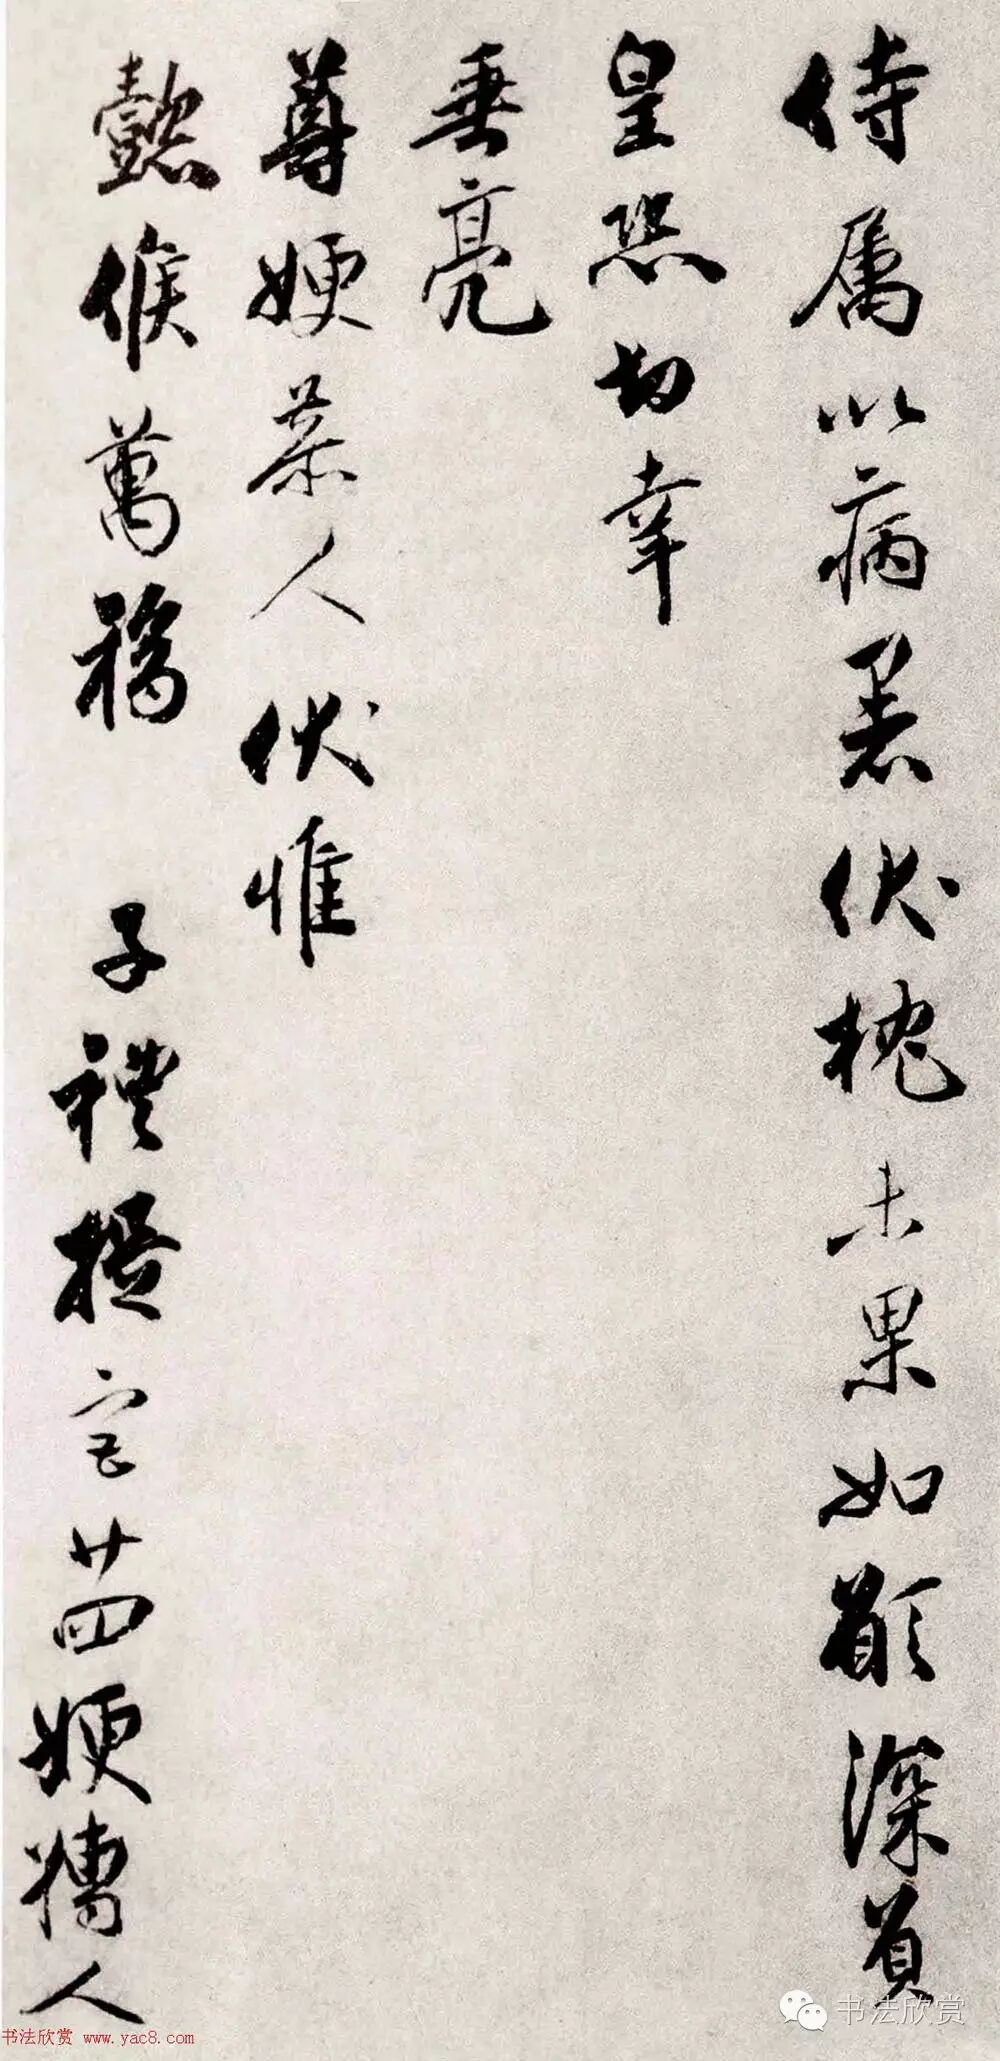 侍属以病恙伏枕未果如願深負
皇恐切幸
垂亮
尊嫂恭人伏惟
懿候萬福 子禮提宫廿四嫂孺人
书法欣赏
书法欣赏 www.yac8.com